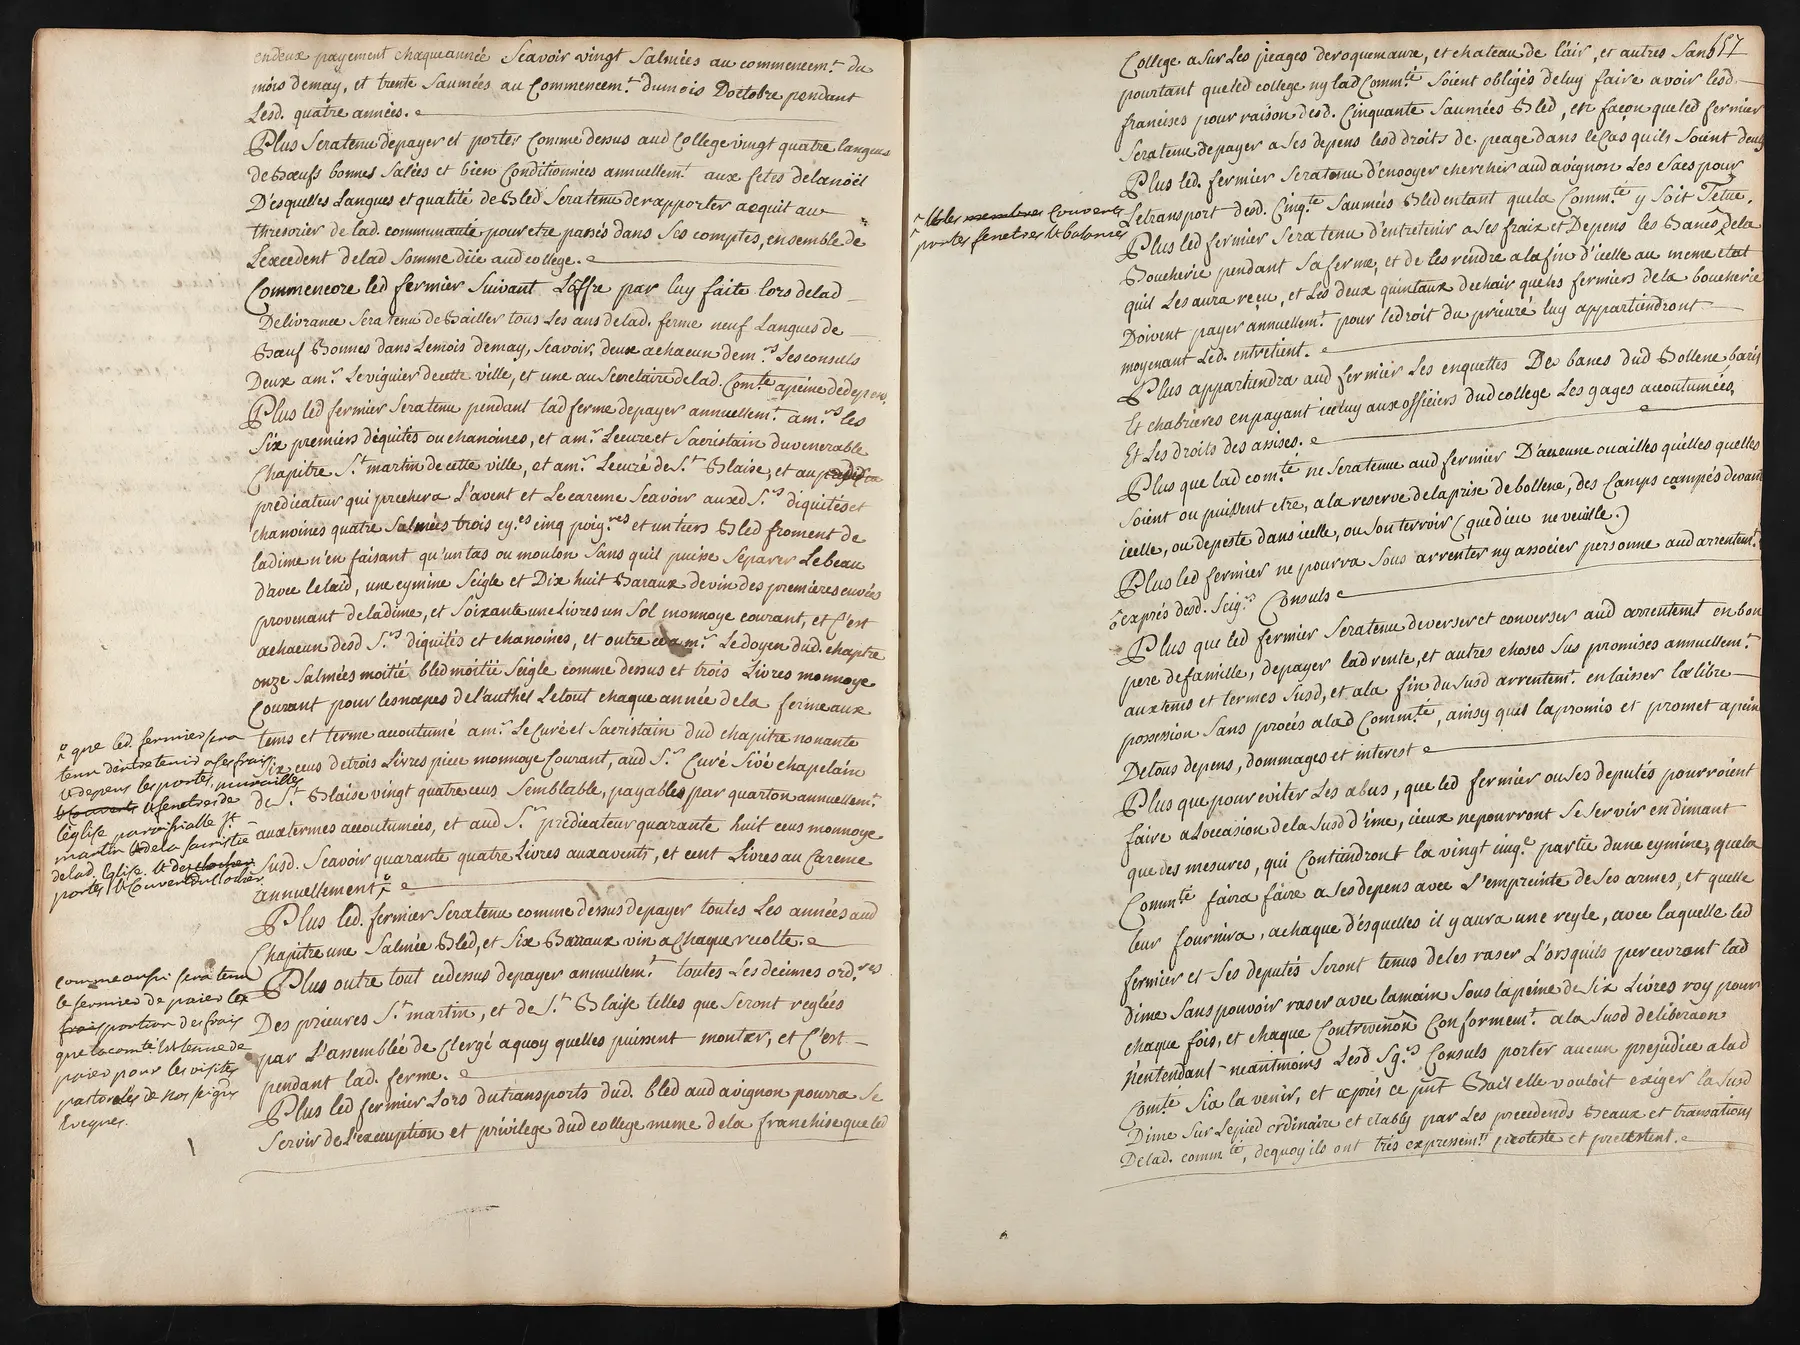 endeux payement chaque année Scavoir vingt Salmées au commencem.t du
mois demay, et trente Saumées au Commencem.t dumois Doctobre pendant
Lesd. quatre années.
Plus Seratenu depayer et porter Comme dessus aud College vingt quatre langues
de Bœufs bonnes Salées et bien Conditionnées annuellem.t aux fetes delanoël
D'esquelles Langues et quatité de Bled Seratenu derapporter acquit au
thresorier de lad. communauté pour etre passés dans Ses comptes, ensemble de
Lexcedent delad Somme diie aud college.
Commencore led fermier Suivant L'offre par luy faite lors delad
Delivrance Sera tenu de Bailler tous Les ans delad. ferme neuf Langues de
Bœuf Bonnes dans Lemois demay, Scavoir, deux achacun dem.rs Lesconsuls
Deux am.r Leviguier decette ville, et une au Secretaire delad. Com.te apeine dedepens.
Plus led fermier Seratenu pendant lad ferme depayer annuellem.t am.rs les
Six premiers déquites ou chanoines, et am.r Lecureet Sacristain duvenerable
Chapitre S.t martin decette ville, et am.r Lecuré de S.t Blaise, et au
predicateur qui prechera L'avent et Lecareme Scavoir auxd S.rs diquitéset
chanoines quatre Salmées trois ey.es cinq poig.res et untiers Bled froment de
ladime n'en faisant qu'un tas ou moulon Sans quil puisse Separer Lebeau
d'avec lelaid, une eymine Seigle et Dix huit Baraux devin des premieres cuvées
provenant deladime, et Soixante une Livres un Sol monnoye courant, et C'est
achacun desd S.rs diquités et chanoines, et outre ce am.r Ledoyen dud. chaptre
onze Salmées moitié bled moitié Seigle comme dessus et trois Livres monnoye
Courant pour lesnapes del'authel Letout chaque année dela ferme aux
tems et terme accoutumé am.r Le Curé et Sacristain dud chapitre nonante
Six ecus detrois Livres piece monnoye Courant, aud S.r Curé Sivé chapelain
de S.t Blaise vingt quatre ecus Semblable, payables par quarton annuellem.t
auxtermes accoutumées, et aud S.r predicateur quarante huit ecus monnoye
Susd. Scavoir quarante quatre Livres auxavents, et cent Livres au Careme
annuellement
Plus led. fermier Seratenu comme dessus depayer toutes Les années aud
Chapitre une Salmée Bled, et Six Barraux vin a Chaque recolte.
Plus outre tout cedessus depayer annuellem.t toutes Les decimes ord.res
Des prieures S.t martin, et de S.t Blaise telles que Seront reglées
par L'assemblée de Clergé aquoy quelles puissent monter, et C'est
pendant lad. ferme.
Plus led fermier Lors dutransports dud. bled aud avignon pourra Se
Servir de L'exemption et privilege dud college meme dela franchise que led
que led. fermier sera
tenu dentretenir a ses frais
& depens les portes, murailles
& couverts & fenetres de
leglise parroissialle S.t
martin & de la sacristie
de lad. Eglise. & des clocher
portes & Couvert du Clocher
comme aussi sera tenu
le fermier de paier les
frais portion des frais
que la comté. est tenue de
paier pour les visites
pastorales de nos seigrs
Eveques.
157
College a Sur Les peages deroquemaure, et chateau de l'air, et autres Sans
pourtant que led college ny lad Comm.té Soient obligés deluy faire avoir lesd
franchises pour raison desd. Cinquante Saumées Bled, en façon que led fermier
Seratenu depayer a Ses depens lesd droits de peage dans leCas quils Soient deub
Plus led. fermier Seratenu d'envoyer chercher aud avignon Les Sacs pour
Letransport desd. Cinq.te Saumées Bled entant quela Comm.té y Soit Tetue.
Plus led fermier Sera tenu d'entretenir a Ses fraix et Depens les Bancs dela
Boucherie pendant Saferme, et de les rendre a lafin d'icelle au meme etat
quil Les aura reçeu, et Les deux quintaux dechair que les fermiers dela boucherie
Doivent payer annuellem.t pour ledroit du prieuré luy appartiendront
moyenant Led. entretient.
Plus appartiendra aud fermier Les enquettes De bans dud Bollene baris
Et chabrieres en payant iceluy aux officiers dud college Les gages accoutumées,
Et Les droits des assises.
Plus que lad com.té ne Seratenue aud fermier D'aucune ouailles quelles quelles
Soient ou puissent etre, a la reserve dela prise debollene, des Camps campés devant
icelle, ou depeste dans icelle, ou Son terroir (que dieu ne veuille.)
Plus led fermier ne pourra Sous arrenter ny associer personne aud arrentem.t
exprés desd. Seig.rs Consuls
Plus que led fermier Seratenu deverser et converser aud arrentem.t en bon
pere defamille, depayer lad rente, et autres choses Sus promises annuellem.t
aux tems et termes Susd, et a la fin du Susd arrentem.t en laisser la libre
possession Sans procés a lad Comm.te, ainsy quil la promis et promet apeine
Detous depens, dommages et interest
Plus que pour eviter Les abus, que led fermier ou Ses deputés pourroient
faire a L'occasion dela Susd d'ime, iceux nepourront Se Servir en dimant
que des mesures, qui Contiendront la vingt cinq.e partie dune eymine, que la
Comm.té faira faire a Ses depens avec L'empreinte de Ses armes, et quelle
leur fournira, a chaque d'esquelles il y aura une regle, avec laquelle led
fermier et Ses deputés Seront tenus deles raser L'orsquils percevront lad
dime Sans pouvoir raser avec la main Sous la peine de Six Livres roy pour
chaque fois, et chaque Contrevenôn Conformem.t a la Susd déliberaôn
N'entendant neantmoins Lesd Sg.rs Consuls porter aucun prejudice a lad
Com.té Sia la venir, et aprés ce pñt Bail elle vouloit exiger la Susd
Dime Sur Lepied ordinaire et etably par Les precedends Beaux et transations
Delad. comm.té, dequoy ils ont trés expressem.t protesté et protestent.
& les membres Couverts
portes fenetres